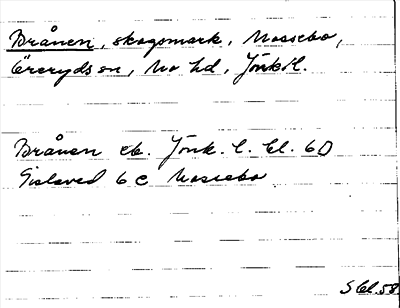 Brånen, skogsmark, Mossebo,
Öreryds sn, Mo hd, Jönk. l.
Brånen ek. Jönk. l. bl. 6D
Gislaved 6 C Mossebo
S bl. 58